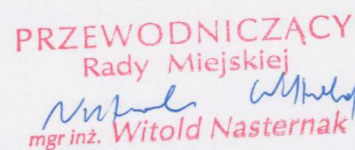 PRZEWODNICZĄCY
Rady Miejskiej
mgr inż. Witold Nasternak